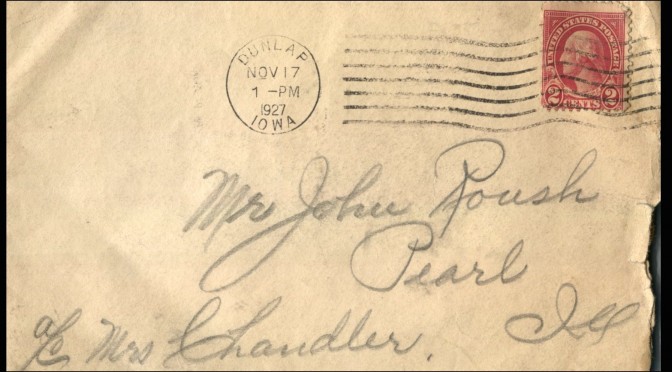 DUNLAP
NOV 17
1 -PM
1927
IOWA
UNITED STATES POSTAGE
2 CENTS 2
Mr John Roush
Pearl
Ill
a/c Mrs Chandler.